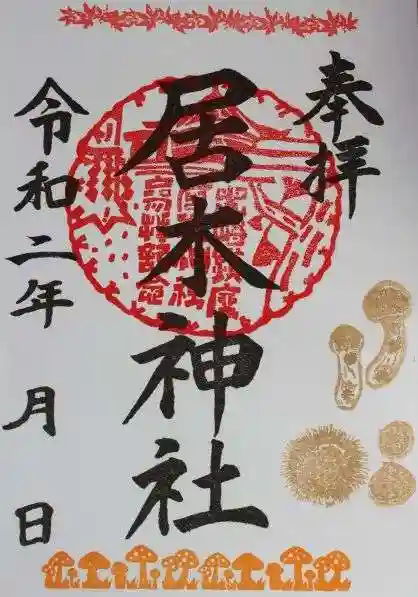 奉拝
居木神社
令和二年 月 日